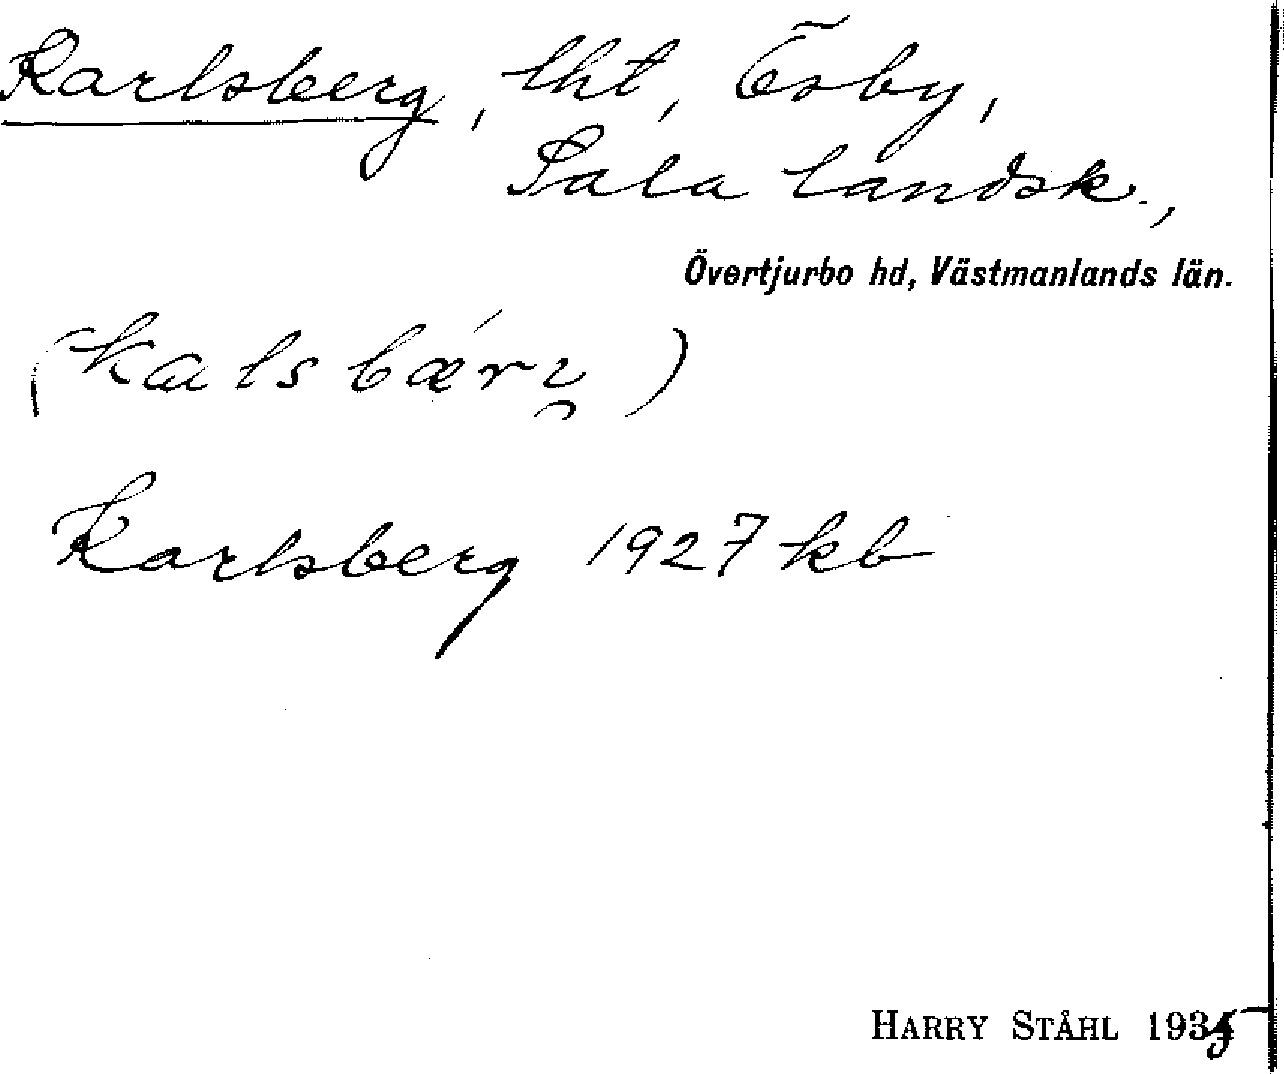 Karlsberg, lht, Ösby,
Sala landsk.,
Övertjurbo hd, Västmanlands län.
Karlsberg 1927 kb
HARRY STÅHL 1935